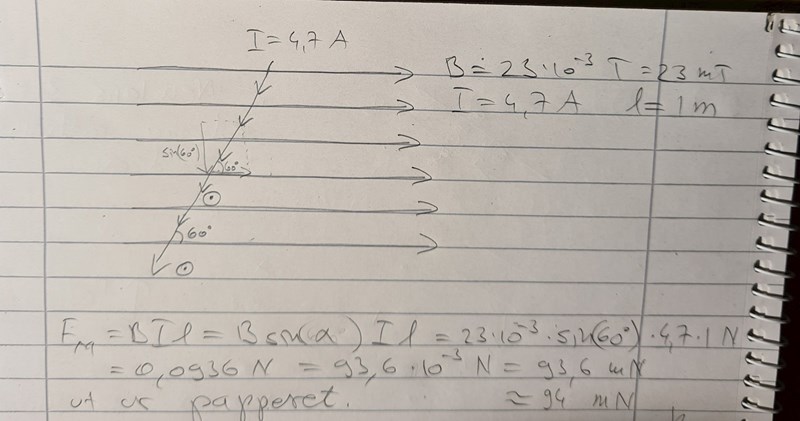 I = 4,7 A
B = 23·10⁻³ T = 23 mT
I = 4,7 A l = 1 m
sin(60°) 60°
60°
F_M = BIl = B sin(α) Il = 23·10⁻³·sin(60°)·4,7·1 N
= 0,0936 N = 93,6·10⁻³ N = 93,6 mN
ut ur papperet. ≈ 94 mN